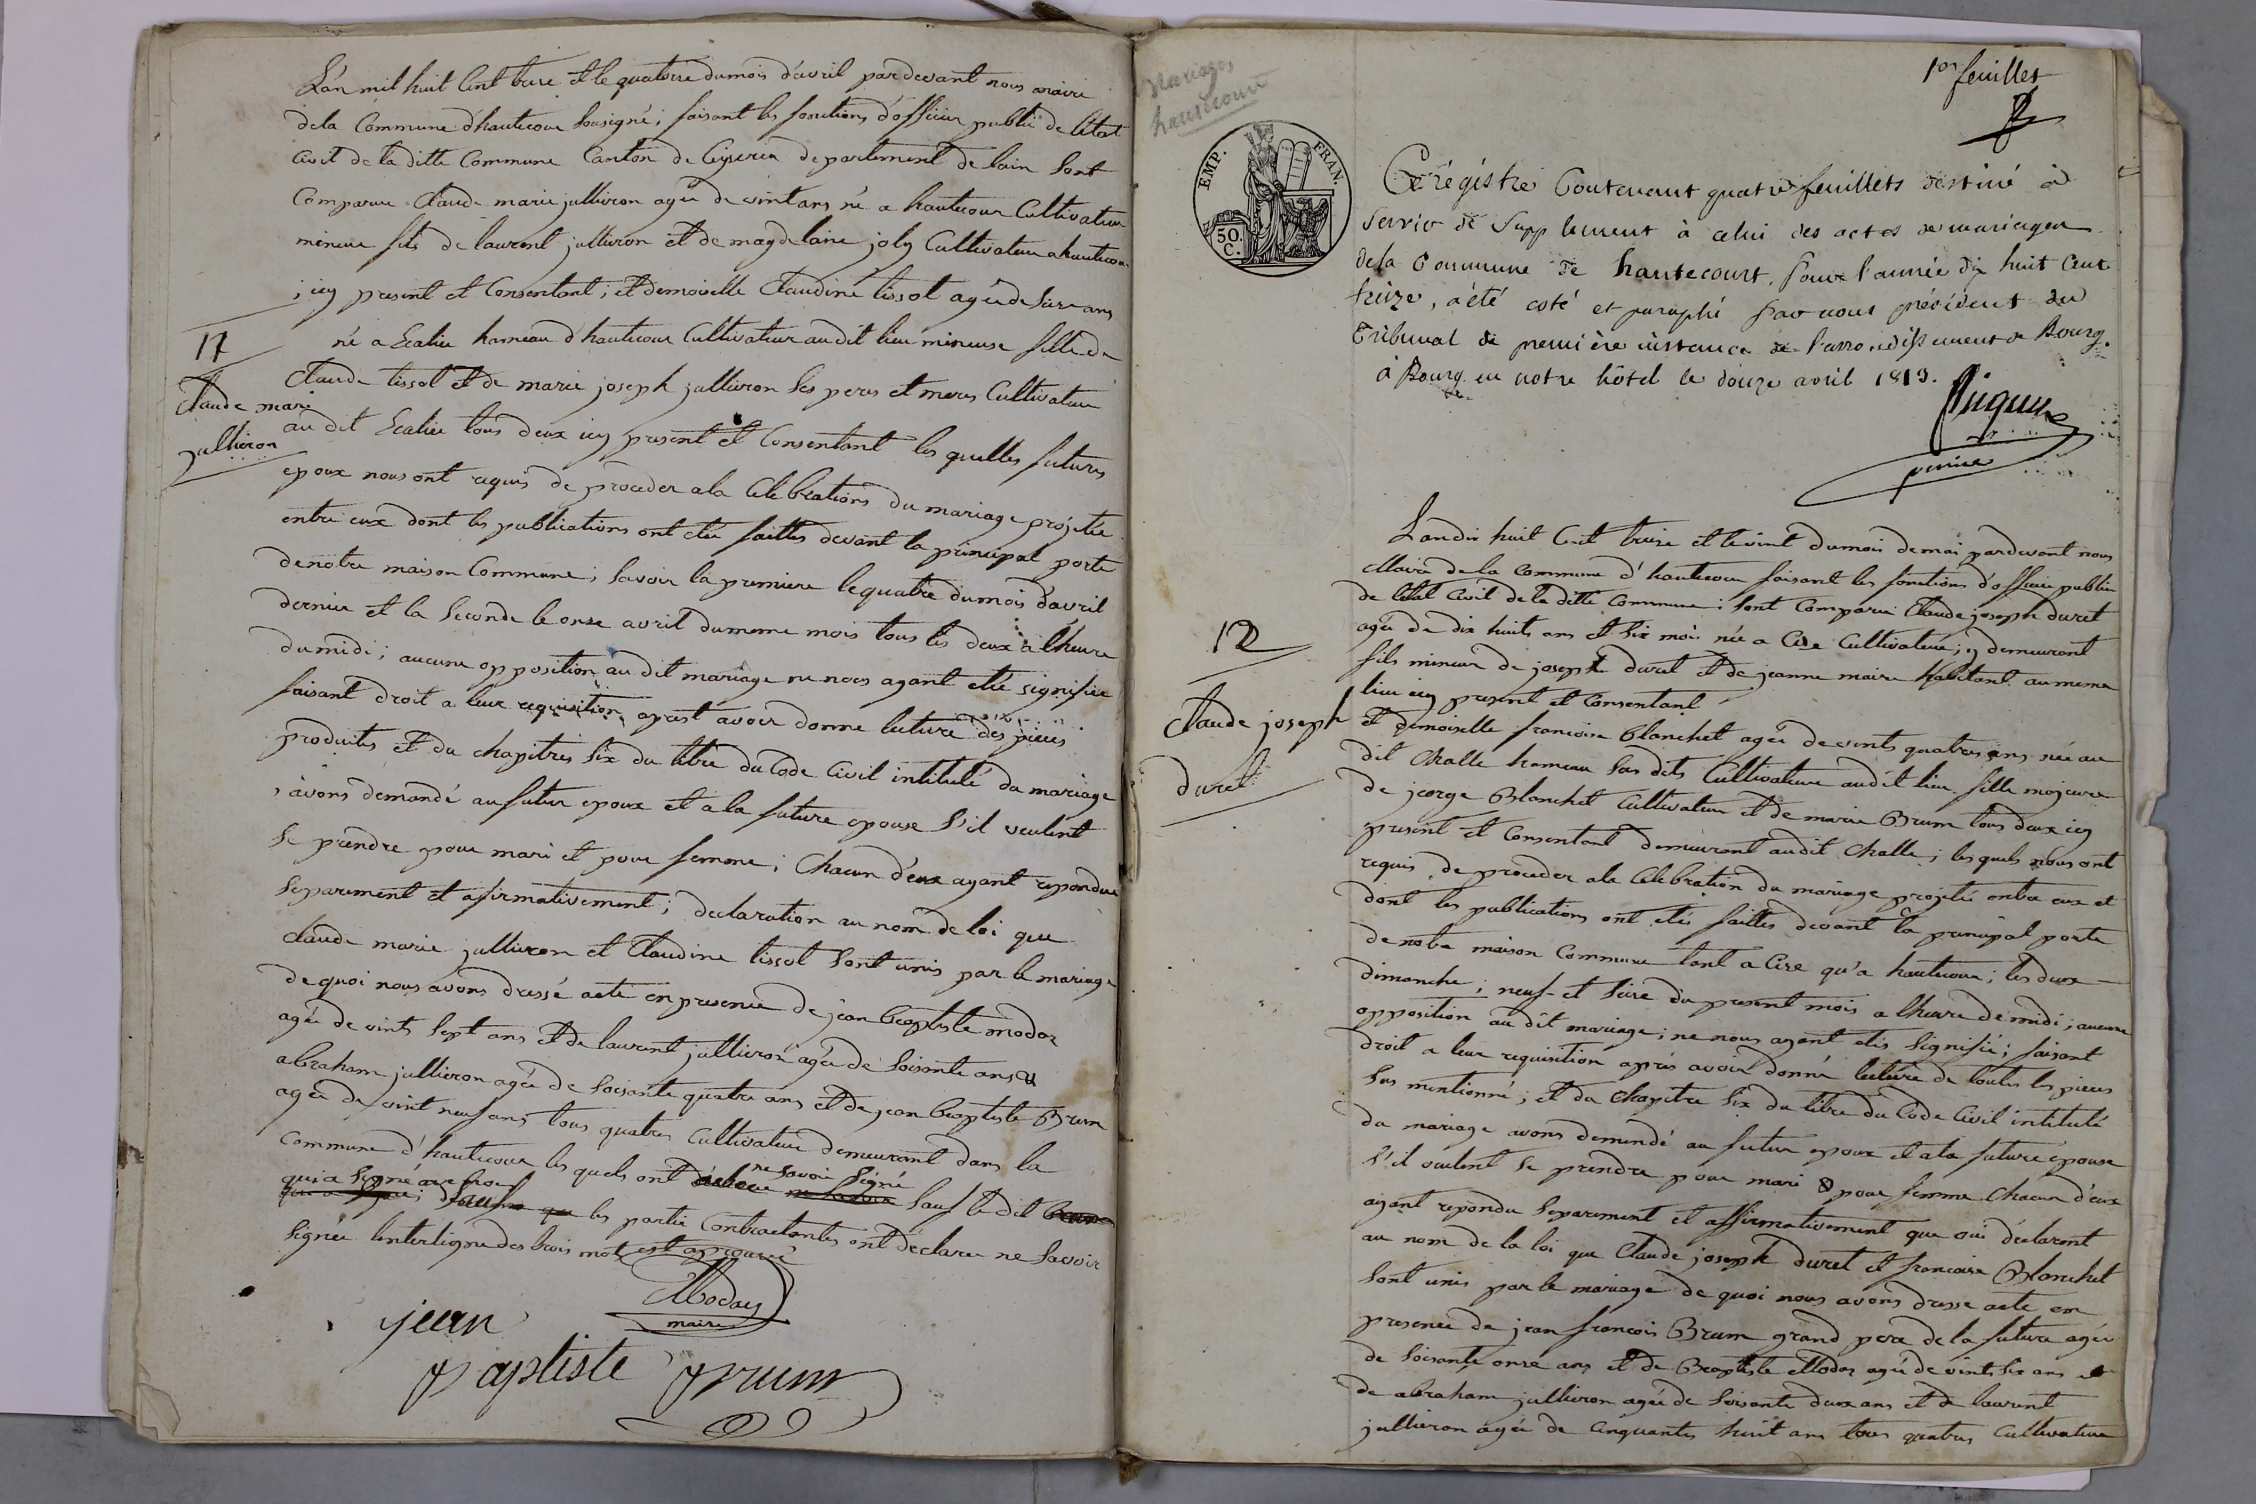 L'an mil huit Cent treize et le quatorze du mois d'avril par devant nous maire
de la Commune d'hautecour Sousigné; faisant les fonctions d'officier public de l'état
Civil de la ditte Commune Canton de Ceyzeria departement de lain Sont
Comparue Claude marie jullieron agée de vint ans né a hautecour Cultivateur
mineur fils de laurent jullieron et de magdelaine joly Cultivateur a hautecour
; icy present et Consentant; et demoiselle Claudine tissot agée de Seize ans
né a Ecalier hameau d'hautecour Cultivateur audit lieu mineure fille de
17
Claude marie
jullieron
Claude tissot et de marie joseph jullieron Ses peres et meres Cultivateur
au dit Ecalier tous deux icy present et Consentant les quelles futurs
epoux nous ont requis de proceder a la Celebrations du mariage projetée
entre eux dont les publications ont etée faittes devant la principal porte
de notre maison Commune; Savoir la premiere le quatre du mois d'avril
dernier et la Seconde le onze avril du meme mois tous les deux a l'heure
du midi; aucune opposition au dit mariage ne nous ayant etée signifiée
faisant droit a leur requisition apres avoir donne lecture des pieces
produites et du chapitres Six du titre du Code Civil intitulé du mariage
, avons demandé au futur epoux et a la future epouse S'il veulent
Se prendre pour mari et pour femme; Chacun d'eux ayant repondue
Separement et afirmativement; declaration au nom de loi que
Claude marie jullieron et Claudine tissot Sont unis par le mariage
de quoi nous avons dressé acte en presence de jean baptiste modas
agée de vints Sept ans et de laurent jullieron agée de Soisante ans et
abraham jullieron agée de Soisante quatre ans et de jean baptiste Brum
agée de vint neuf ans tous quatres Cultivateur demeurant dans la
Commune d'hautecour les quels ont declaree ne Savoir Signé Sauf le dit
qui a Signé avec nous les partie Contractantes ont declaree ne Savoir
Signée l'interligne des trois mots est aprouvé
Modas
maire
jean
Baptiste Brum
mariages
hautecour
1er feuillet
EMP. FRAN.
50 C.
Ce régistre Contenant quatre feuillets destiné à
Servir de Supplement à celui des actes de mariages
de la Commune de hautecourt, pour l'année dix huit Cent
treize, a été coté et paraphé par nous président du
Tribunal de première instance de l'arrondissement de Bourg.
à Bourg en notre hôtel le douze avril 1813.
L'an dix huit Cent treize et le vint du mois de mai pardevant nous
Maire de la Commune d'hautecour faisant les fonctions d'officier public
de l'état Civil de la ditte Commune; Sont Comparue Claude joseph duret
agée de dix huits ans et Six mois née a Cize Cultivateur; y demeurant
fils mineur de joseph duret et de jeanne maire habitant au meme
lieu icy present et Consentant
12
Claude joseph
duret
et demoiselle francoise Blanchet agée de vints quatres ans née au
dit Challe hameau Sus dits Cultivateur audit lieu fille majeure
de jeorge Blanchet Cultivateur et de marie Brum tous deux icy
present et Consentant demeurant audit Challe; les quels nous ont
requis de proceder a la Celebration du mariage projetée entre eux et
dont les publications ont etés faittes devant la principal porte
de notre maison Commune tant a Cize qu'a hautecour; les deux
dimanche; neuf et Seize du present mois a l'heure de midi; aucune
opposition au dit mariage; ne nous ayant etés Signifié; faisant
droit a leur requisition après avoir donné lecture de toutes les pieces
Sus mentionné; et du Chapitre Six du titre du Code Civil intitulé
du mariage avons demandé au futur epoux et a la future épouse
S'il veulent Se prendre pour mari & pour femme Chacun d'eux
ayant repondu Separement et affirmativement que oui déclarent
au nom de la loi que Claude joseph duret et francoise Blanchet
Sont unis par le mariage de quoi nous avons dresse acte en
presence de jean françois Brum grand pere de la future agée
de Soisante onze ans et de Baptiste Modas agée de vints Six ans et
de abraham jullieron agée de Soisante deux ans et de laurent
jullieron agée de Cinquantes huit ans tous quatres Cultivateur